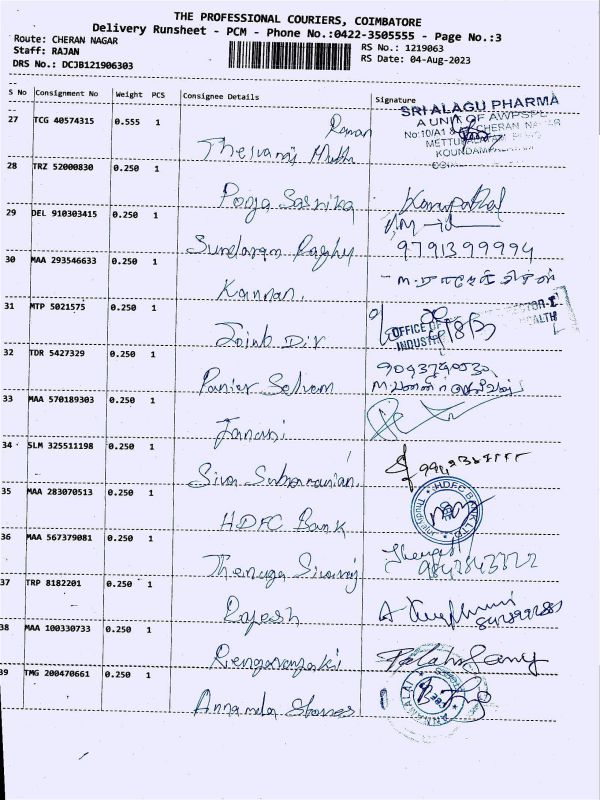 THE PROFESSIONAL COURIERS, COIMBATORE
Delivery Runsheet - PCM - Phone No.:0422-3505555 - Page No.:3
Route: CHERAN NAGAR
Staff: RAJAN
DRS No.: DCJB121906303
RS No.: 1219063
RS Date: 04-Aug-2023
S No Consignment No Weight PCS Consignee Details Signature
SRI ALAGU PHARMA
A UNIT OF AWPSPL
No:10/A1 CHERAN NAGAR
KOUNDAMPALAYAM
27 TCG 40574315 0.555 1 Raman
28 TRZ 52000830 0.250 1 Pooja Sasrika
29 DEL 910303415 0.250 1 Sundaram Raghu 9791399994
30 MAA 293546633 0.250 1 Kannan.
31 MTP 5021575 0.250 1 Joint Dir
OFFICE OF
HEALTH
32 TDR 5427329 0.250 1 Panier Selvam
33 MAA 570189303 0.250 1 Janani
34 SLM 325511198 0.250 1 Siva Subramanian.
35 MAA 283070513 0.250 1 HDFC Bank
HDFC BANK LTD
36 MAA 567379081 0.250 1 Thenuga Sivaraj
37 TRP 8182201 0.250 1 Rajesh
38 MAA 100330733 0.250 1 Renganayaki
39 TMG 200470661 0.250 1 Annamalai Stores
ANNAMALAI